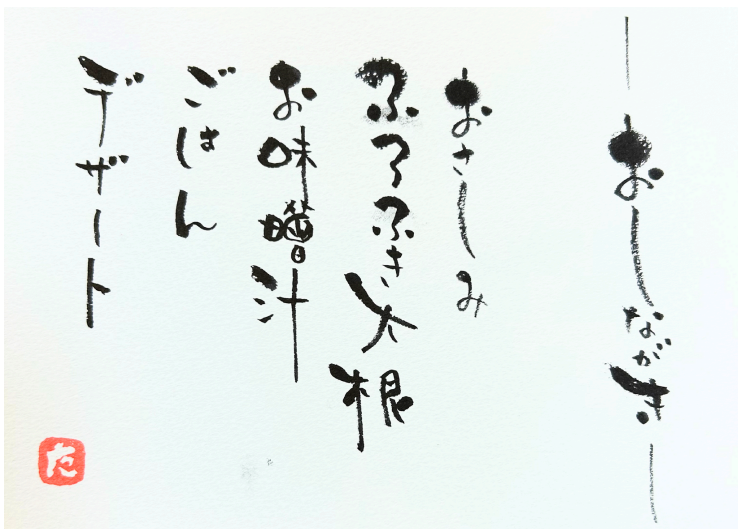 おしながき
おさしみ
ふろふき大根
お味噌汁
ごはん
デザート
た